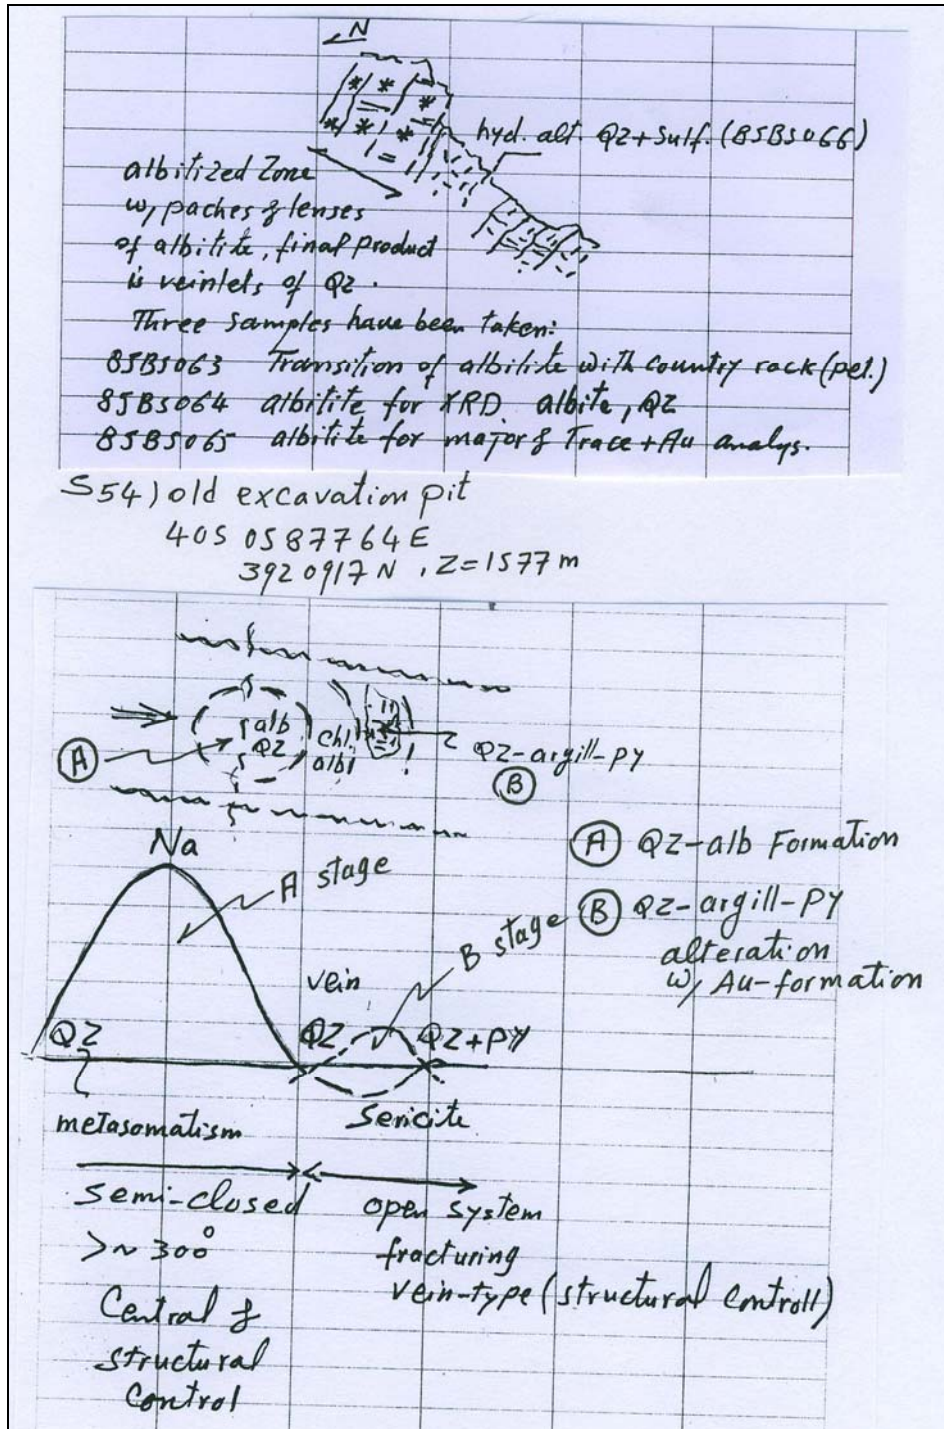 N
hyd. alt. QZ+Sulf. (85BS066)
albitized Zone
w/ paches & lenses
of albitite, final product
is veinlets of QZ.
Three samples have been taken:
85BS063 Transition of albitite with country rock (pet.)
85BS064 albitite for XRD albite, QZ
85BS065 albitite for major & Trace + Au analys.
S54) old excavation pit
40S 0587764E
3920917N, Z=1577m
alb
QZ
chl
albi
QZ-argill-py
A
B
A QZ-alb Formation
B QZ-argill-py
alteration
w/ Au-formation
Na
A stage
B stage
vein
QZ
QZ
QZ+py
metasomatism
Sericite
semi-closed
>~300°
Central &
structural
Control
open system
fracturing
vein-type (structural Controll)